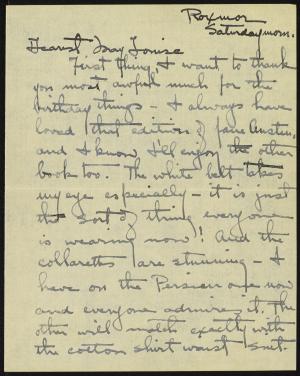 Roxmor
Saturday morn.
Dearest May Louise
First thing, I want to thank
you most awful much for the
birthday things - I always have
loved that edition of Jane Austen,
and I know I'll enjoy the other
book too. The white belt takes
my eye especially - it is just
the sort of thing everyone
is wearing now! And the
collaretts are stunning - I
have on the Persian one now
and everyone admires it. The
other will match exactly with
the cotton shirt waist suit.